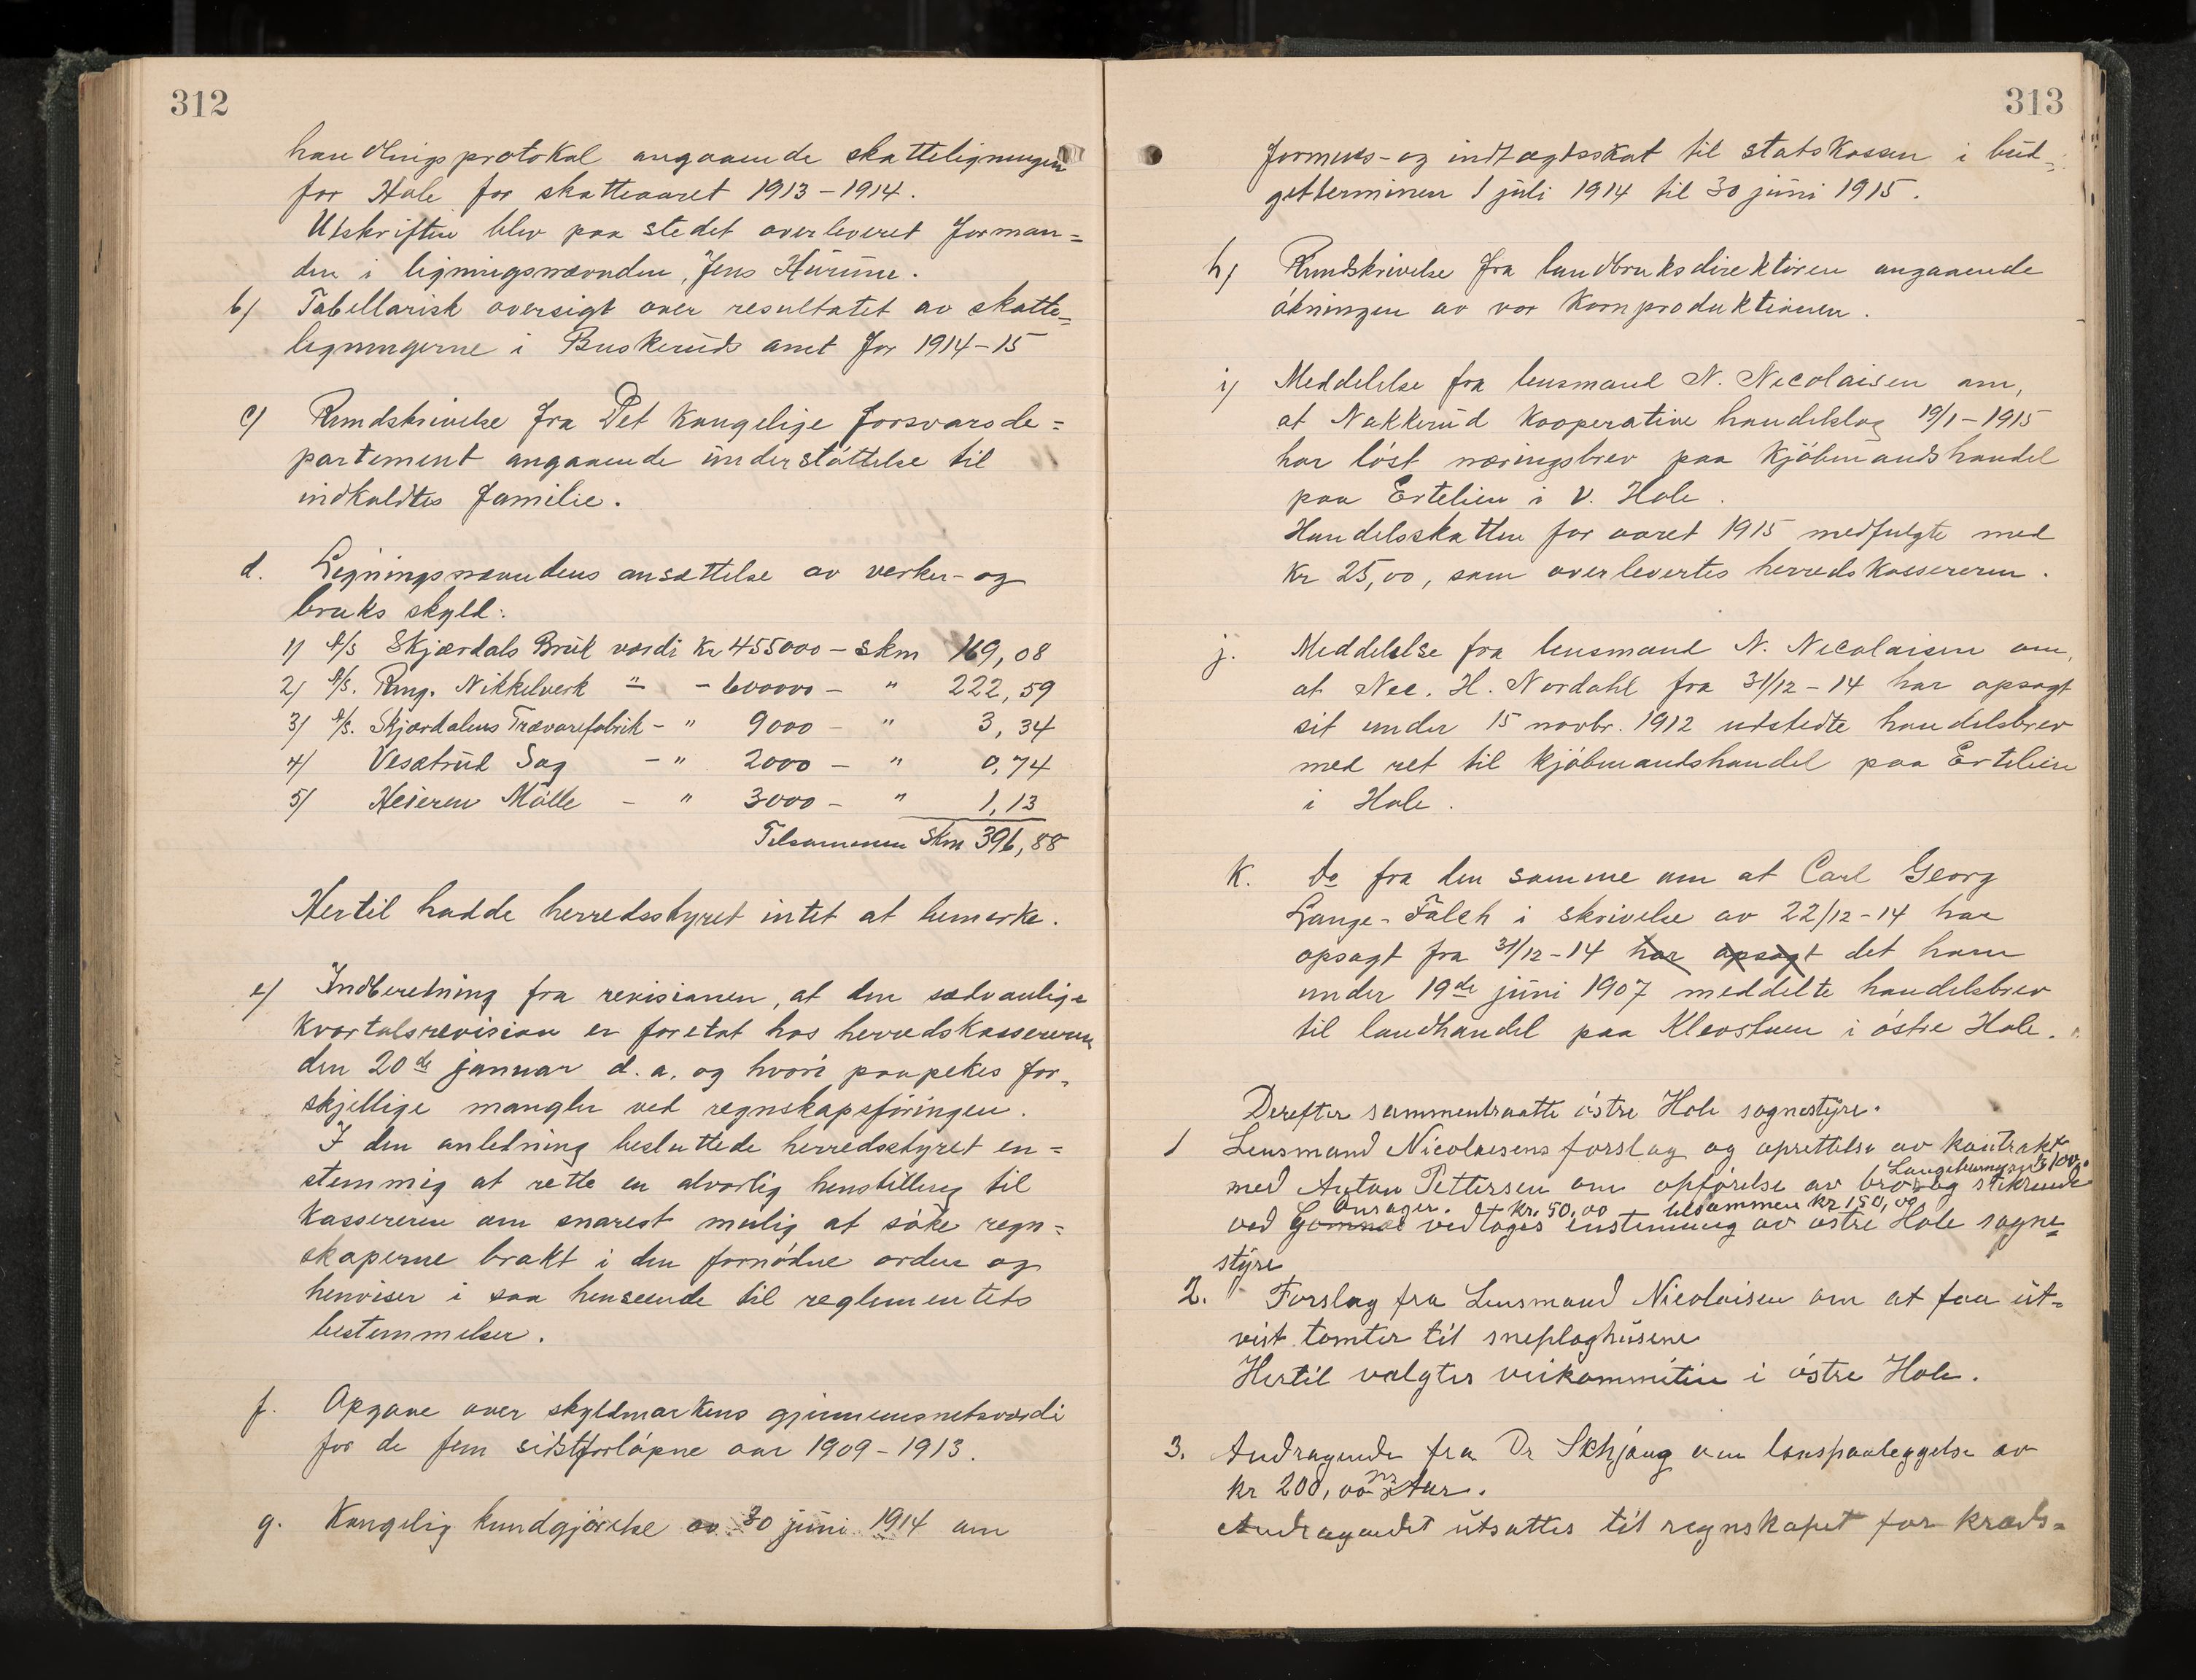 312
handlingsprotokol angaaende skatteligningen
for Hole for skatteaaret 1913-1914.
Utskriften blev paa stedet overleveret forman=
den i ligningsnævnden, Jens Hurum.
b) Tabellarisk oversigt over resultatet av skatte=
ligningerne i Buskeruds amt for 1914-15
c) Rundskrivelse fra Det kongelige forsvarsde=
partement angaaende understøttelse til
indkaldtes familie.
d. Ligningsnævndens ansættelse av verker- og
bruks skyld:
1) A/S Skjærdals Bruk værdi kr 455000 - skm 169,08
2) A/S. Ring. Nikkelverk " - 600000 - " 222,59
3) A/S. Skjærdalens Trævarefabrik - " 9000 - " 3,34
4) Vesætrud Sag - " 2000 - " 0,74
5) Heieren Mølle - " 3000 - " 1,13
Tilsammen Skm 396,88
Hertil hadde herredsstyret intet at bemerke.
e) Indberetning fra revisionen, at den sedvanlige
kvartalsrevision er foretat hos herredskassereren
den 20de januar d. a. og hvori paapekes for=
skjellige mangler ved regnskapsføringen.
I den anledning besluttede herredsstyret en=
stemmig at rette en alvorlig henstilling til
kassereren om snarest mulig at søke regn=
skaperne brakt i den fornødne orden og
henviser i saa henseende til reglementets
bestemmelser.
f. Opgave over skyldmarkens gjennemsnetsværdi
for de fem sidstforløpne aar 1909-1913.
g. Kongelig kundgjørelse av 30 juni 1914 om
313
formues- og indtægtsskat til statskassen i bud=
getterminen 1 juli 1914 til 30 juni 1915.
h) Rundskrivelse fra landbruksdirektøren angaaende
økningen av vor kornproduktionen.
i) Meddelelse fra lensmand N. Nicolaisen om,
at Nakkerud kooperative handelslag 19/1-1915
har løst næringsbrev paa kjøbmandshandel
paa Ertelien i V. Hole.
Handelsskatten for aaret 1915 medfulgte med
kr 25,00, som overlevertes herredskassereren.
j. Meddelelse fra lensmand N. Nicolaisen om,
at Nec. H. Nordahl fra 31/12-14 har opsagt
sit under 15 novbr. 1912 utstedte handelsbrev
med ret til kjøbmandshandel paa Ertelien
i Hole.
k. Do fra den samme om at Carl Georg
Lange-Falch i skrivelse av 22/12-14 har
opsagt fra 31/12-14 har opsagt det ham
under 19de juni 1907 meddelte handelsbrev
til landhandel paa Klevstuen i østre Hole.
Derefter sammentraatte østre Hole sognestyre.
1 Lensmand Nicolaisens forslag og oprettelse av kontrakt
kr 100,
med Anton Pettersen om opførelse av bro og stikrende
Onsager. kr. 50,00 tilsammen kr 150,00
ved Gomnæs vedtoges enstemmig av østre Hole sogne=
styre
2. Forslag fra Lensmand Nicolaisen om at faa ut=
vist tomter til sneploghusene
Hertil valgtes veikommitéen i østre Hole.
3. Andragende fra Dr Schjøng om lønspaaleggelse av
kr 200,00 Aar.
Andragendet utsattes til regnskapet for kreds=